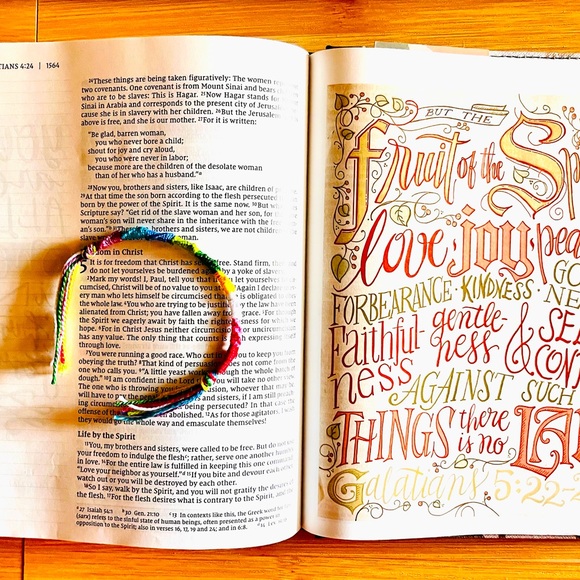 TIANS 4:24 | 1564
24These things are being taken figuratively: The women
two covenants. One covenant is from Mount Sinai and bears
who are to be slaves: This is Hagar. 25Now Hagar stands for
Sinai in Arabia and corresponds to the present city of
cause she is in slavery with her children. 26But the
above is free, and she is our mother. 27For it is written:
"Be glad, barren woman,
you who never bore a child;
shout for joy and cry aloud,
you who were never in labor;
because more are the children of the desolate woman
than of her who has a husband."a
28Now you, brothers and sisters, like Isaac, are children of
29At that time the son born according to the flesh persecuted
born by the power of the Spirit. It is the same now. 30But
Scripture say? "Get rid of the slave woman and her son, for
woman's son will never share in the inheritance with the
son."b brothers and sisters, we are not children
dom in Christ
5 It is for freedom that Christ has Stand firm,
do not let yourselves be burdened by a yoke of
2Mark my words! I, Paul, tell you that
cumcised, Christ will be of no value to you at
ery man who lets himself be circumcised is obligated to
the whole law. 4You who are trying to be justified by the law
alienated from Christ; you have fallen away from grace.
the Spirit we eagerly await by faith the
hope. 6For in Christ Jesus neither nor
has any value. The only thing that counts
through love.
7You were running a good race. Who cut you to keep
obeying the truth? 8That kind of
one who calls you. 9"A little yeast through the whole
dough." 10I am confident in the Lord will take no other
The one who is throwing you whoever that
will have to pay the and sisters, if I am still
ing being persecuted? In that case
offense of abolished. 12As for those agitators, I
they would go the whole way and emasculate themselves!
Life by the Spirit
13You, my brothers and sisters, were called to be free. But do not
your freedom to indulge the flesh; rather, serve one another
in love. 14For the entire law is fulfilled in keeping this one
"Love your neighbor as yourself." 15If you bite and devour each
watch out or you will be destroyed by each other.
16So I say, walk by the Spirit, and you will not gratify the desires
the flesh. 17For the flesh desires what is contrary to the Spirit,
a 27 Isaiah 54:1 b 30 Gen. 21:10 c 13 In contexts like this, the Greek word
(sarx) refers to the sinful state of human beings, often presented as a power in
opposition to the Spirit; also in verses 16, 17, 19 and 24; and in 6:8.
BUT THE
fruit of the
love · joy
FORBEARANCE · KINDNESS
faithful- gentle-
ness ness &
AGAINST SUCH
THINGS there is no
Galatians 5:22-2